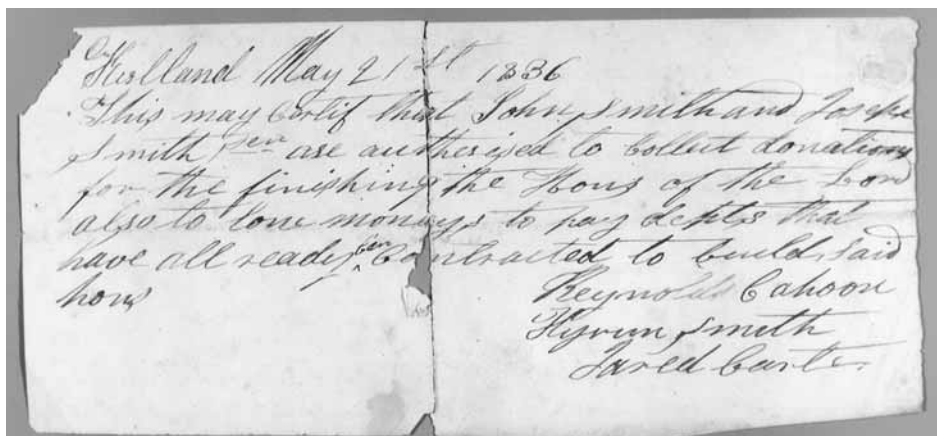 Kirtland May 21st 1836
This may Certif that John Smith and Joseph
Smith Sen are autherised to Collect donations
for the finishing the Hous of the Lord
also to lone moneys to pay depts that
have all ready ben Contracted to build said
hous
Reynolds Cahoon
Hyrum Smith
Jared Carter